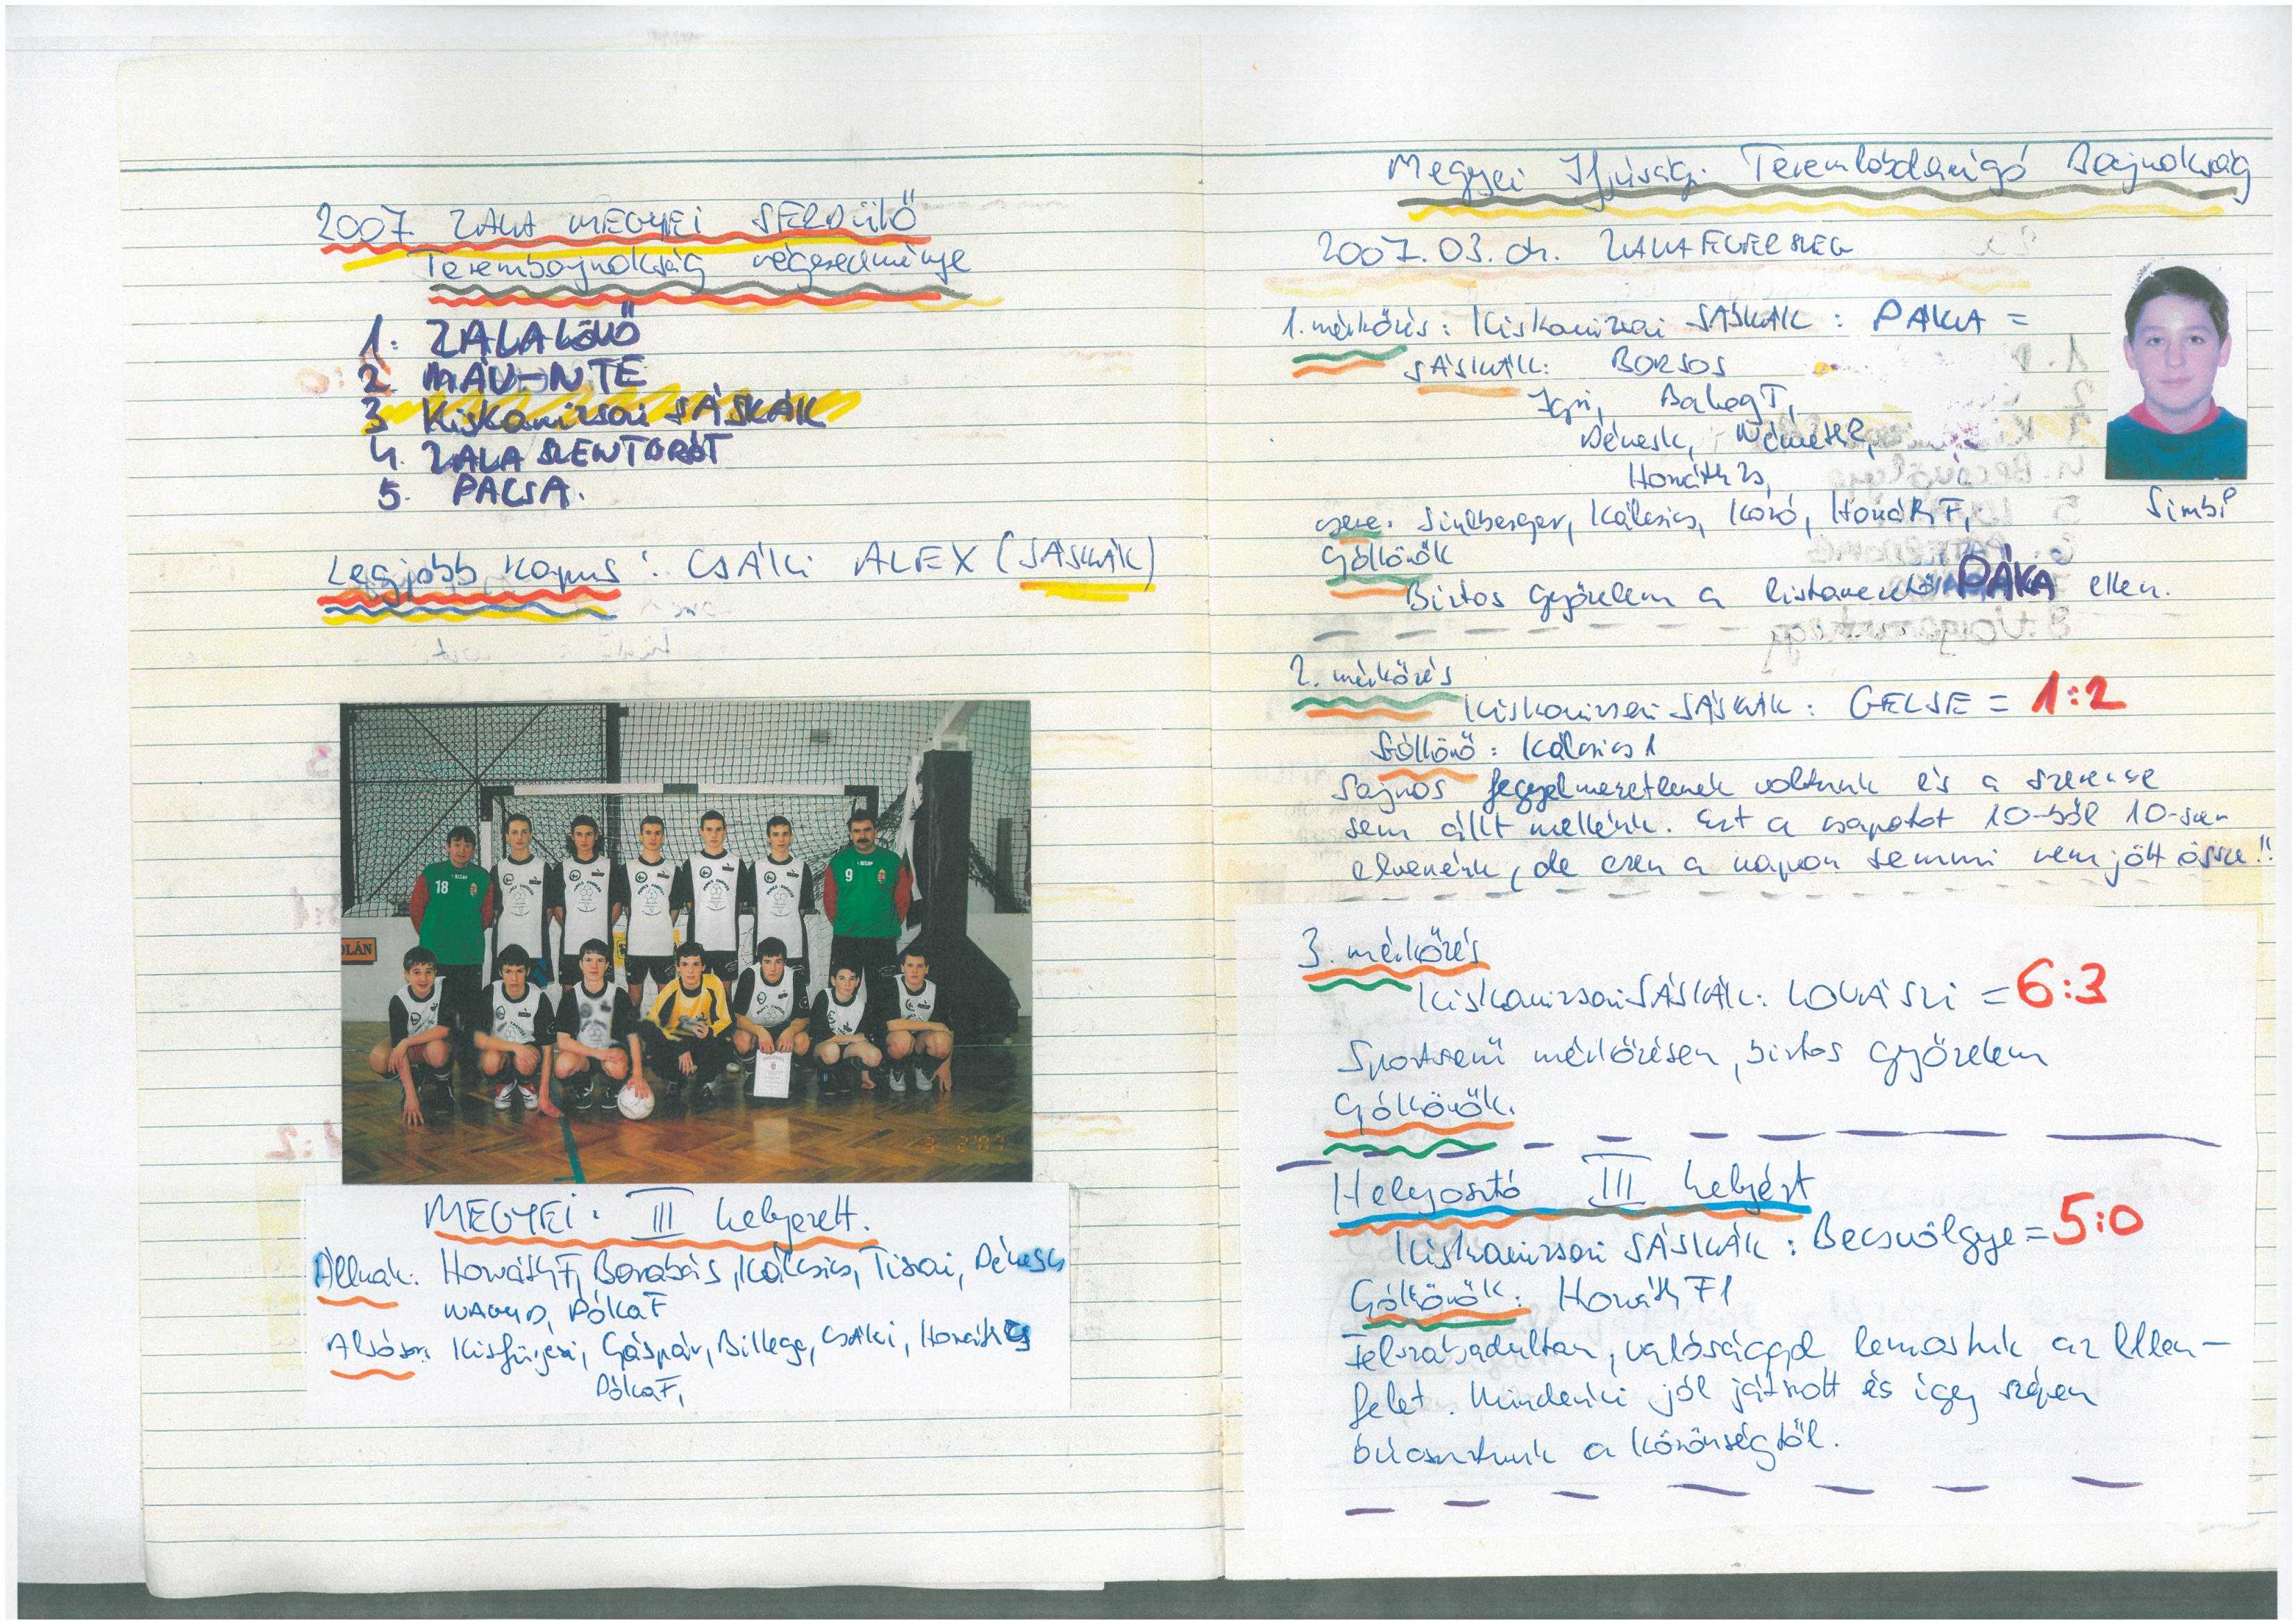 2007 ZALA MEGYEI SERDÜLŐ
Terembajnokság végeredménye
1. ZALALÖVŐ
2. MÁV-NTE
3 Kiskanizsai SÁSKÁK
4. ZALASZENTGRÓT
5. PACSA.
Legjobb kapus: CSÁKI ALEX (SÁSKÁK)
18
9
MEGYEI. III helyezett.
Állnak: Horváth F, Barabás, Kálcsics, Tisai, Dénesk
NAGY D, Dóka F
Alsósor: Gáspár, Billege, CSÁKI, Horváth
Dóka F,
Megyei Ifjúsági Teremlabdarúgó Bajnokság
2007. 03. 04. ZALAEGERSZEG
1. mérkőzés: Kiskanizsai SÁSKÁK: PÁKA =
SÁSKÁK: BORSOS
Balog T,
Dénesk, Németh R,
Horváth Zs,
csere: Kálcsics, Horváth F,
Góllövők
Biztos győzelem a listavezető PÁKA ellen.
Simbi
2. mérkőzés
Kiskanizsai SÁSKÁK: GELSE = 1:2
Góllövő: Kálcsics 1
Sajnos fegyelmezetlenek voltunk és a szerencse
sem állt mellénk. Ezt a csapatot 10-ből 10-szer
elvernénk, de ezen a napon semmi nem jött össze!!
3. mérkőzés
Kiskanizsai SÁSKÁK: LOVÁSZI = 6:3
Sportszerű mérkőzésen, biztos győzelem
Góllövők.
Helyosztó III helyért
Kiskanizsai SÁSKÁK: Becsvölgye = 5:0
Góllövők: Horváth F 1
Felszabadultan, valósággal lemostuk az ellen-
felet. Mindenki jól játszott és így szépen
búcsúztunk a közönségtől.